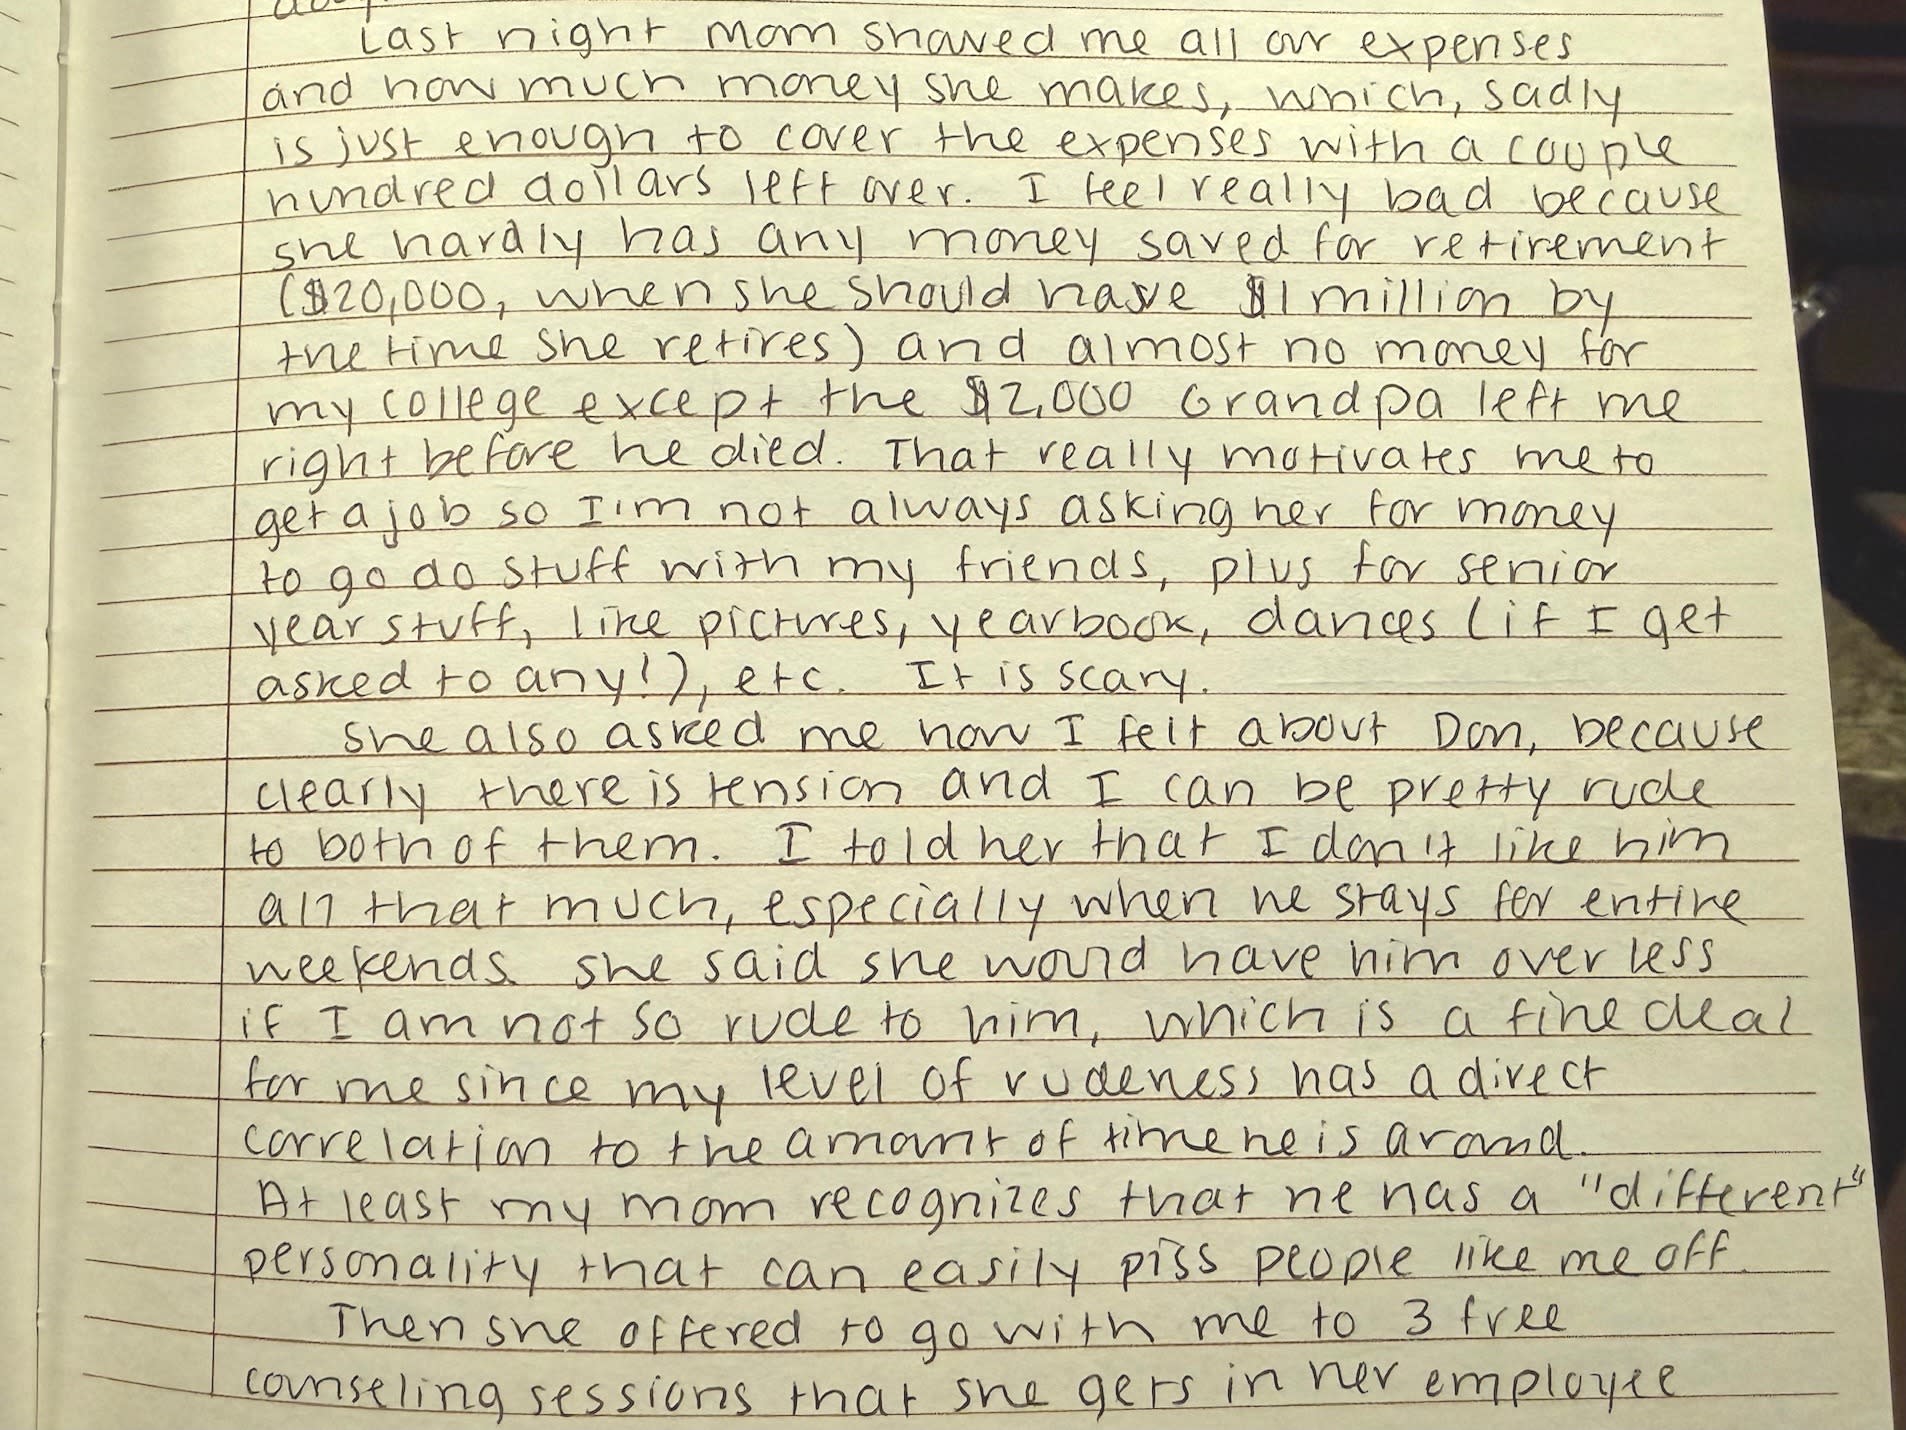 Last night mom showed me all our expenses
and how much money she makes, which, sadly
is just enough to cover the expenses with a couple
hundred dollars left over. I feel really bad because
she hardly has any money saved for retirement
($20,000, when she should have $1 million by
the time she retires) and almost no money for
my college except the $2,000 Grandpa left me
right before he died. That really motivates me to
get a job so I'm not always asking her for money
to go do stuff with my friends, plus for senior
year stuff, like pictures, yearbook, dances (if I get
asked to any!), etc. It is scary.
She also asked me how I felt about Don, because
clearly there is tension and I can be pretty rude
to both of them. I told her that I don't like him
all that much, especially when he stays for entire
weekends. She said she would have him over less
if I am not so rude to him, which is a fine deal
for me since my level of rudeness has a direct
correlation to the amount of time he is around.
At least my mom recognizes that he has a "different"
personality that can easily piss people like me off.
Then she offered to go with me to 3 free
counseling sessions that she gets in her employee